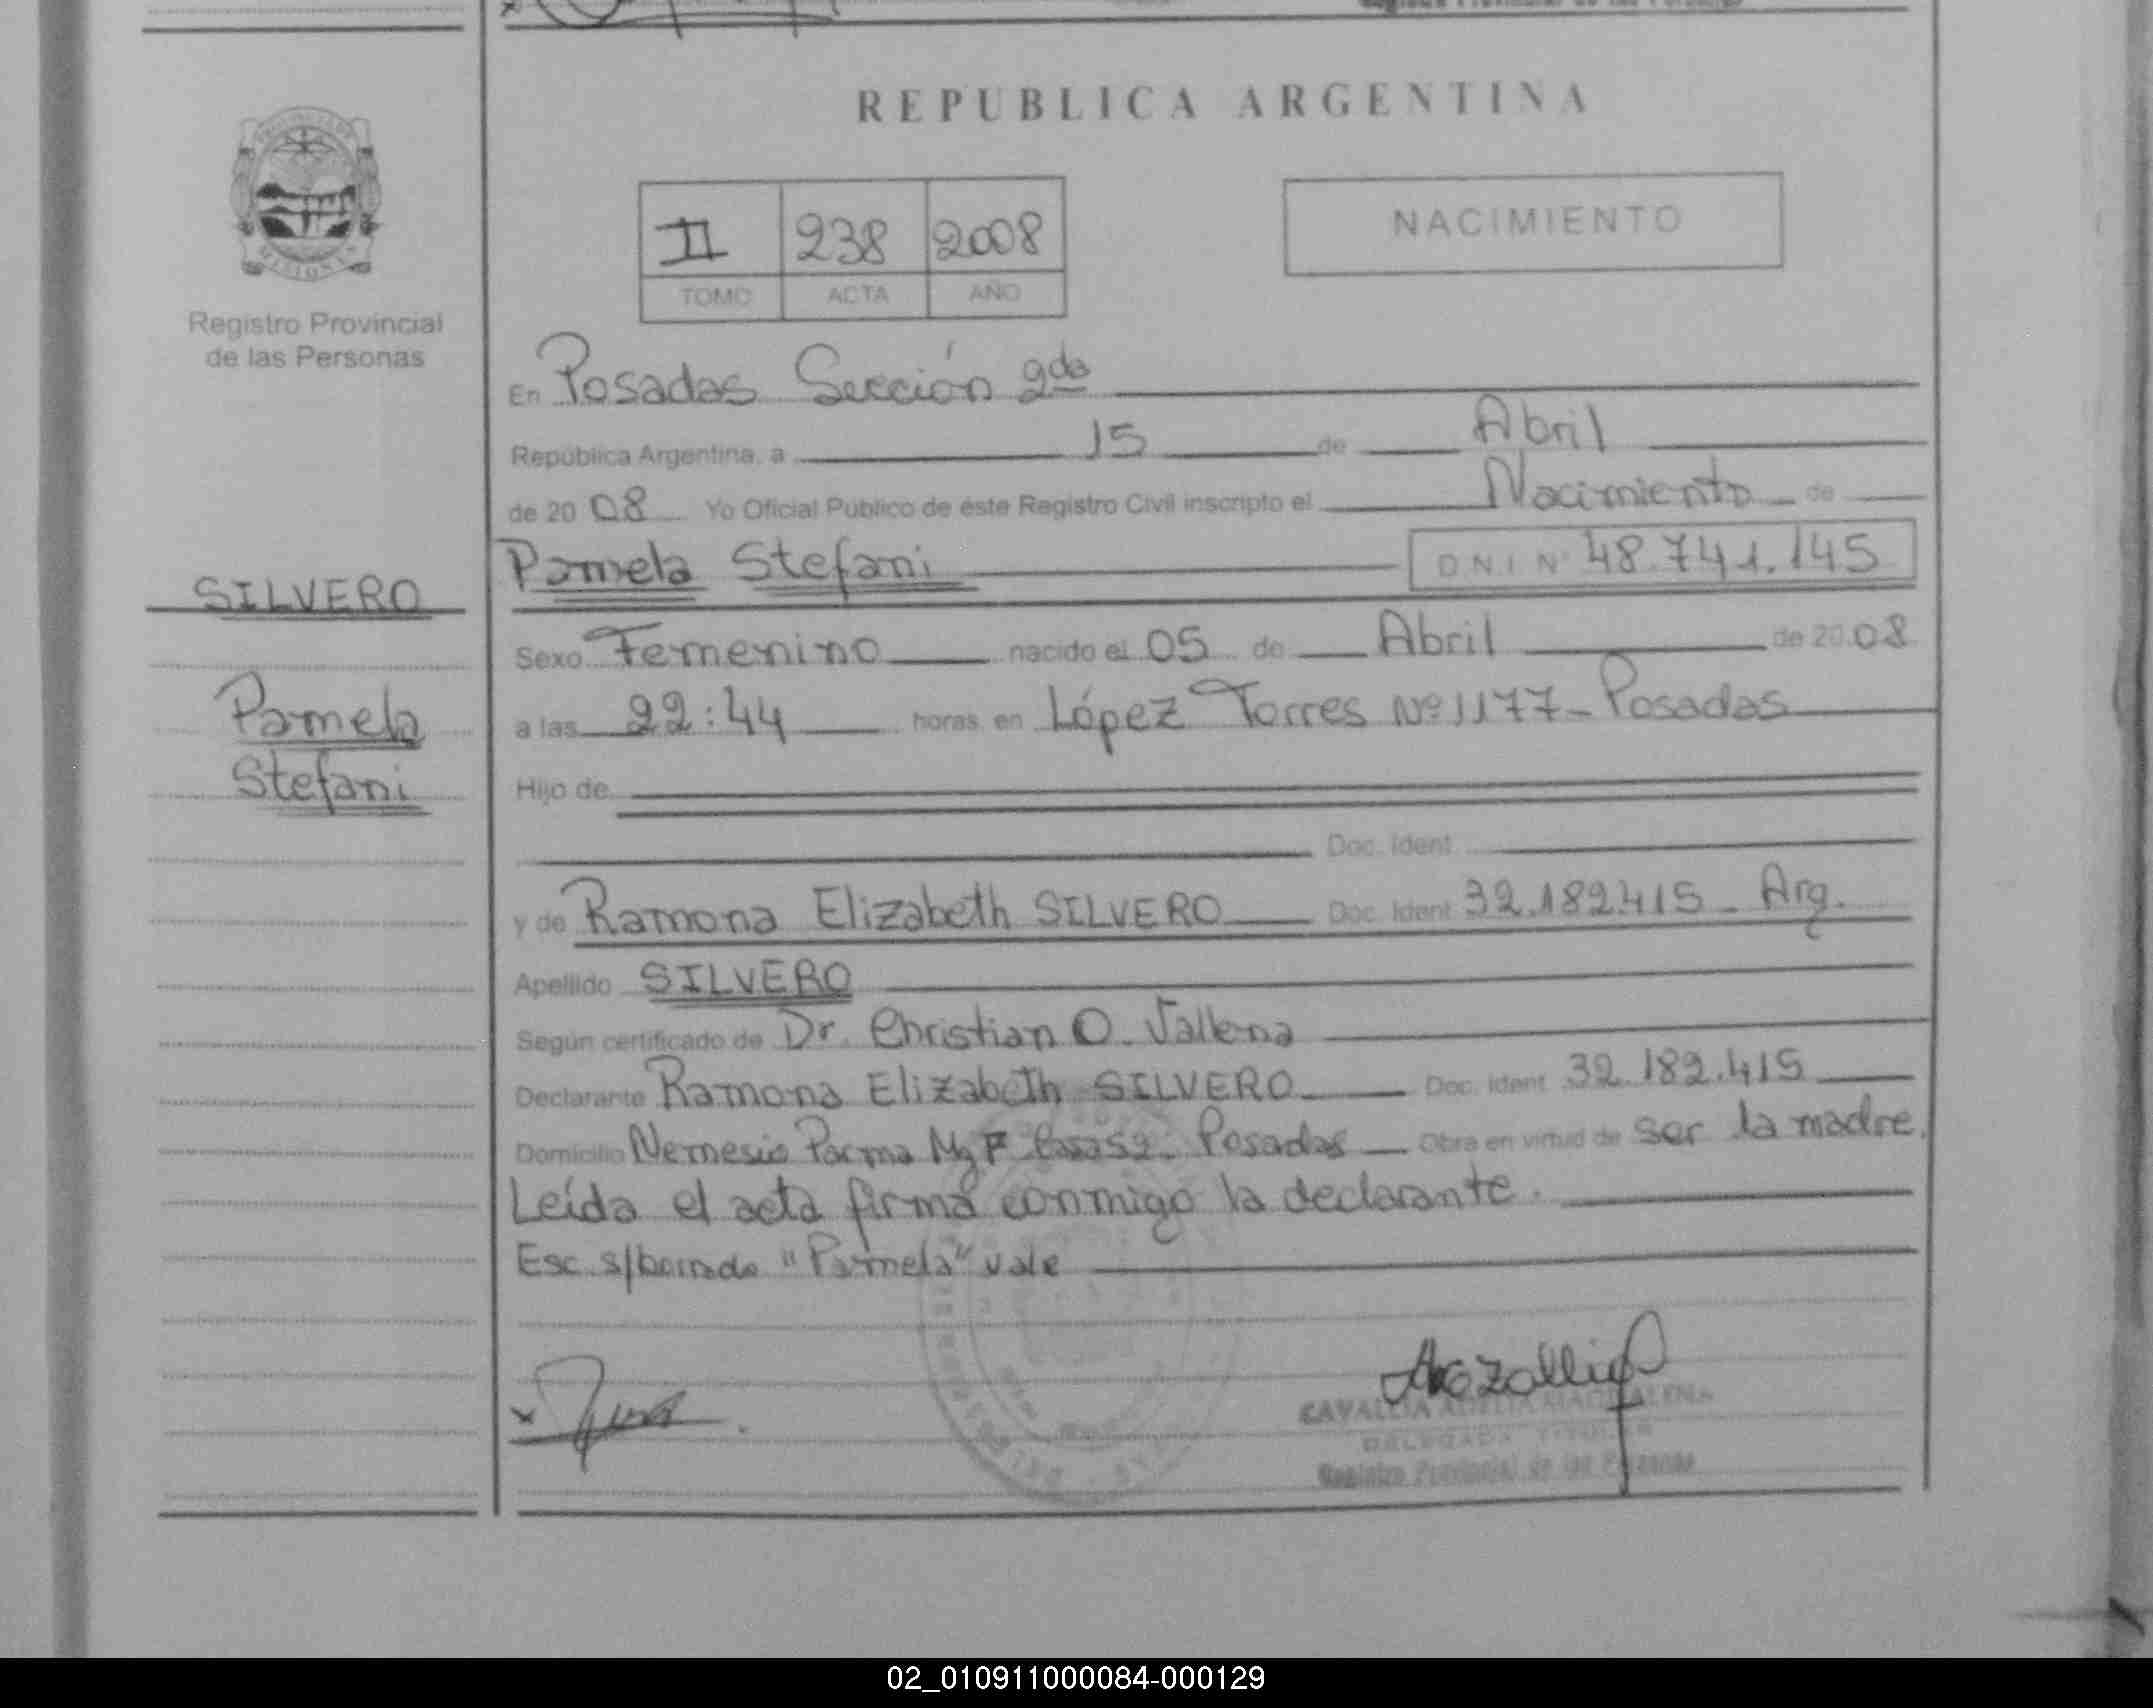 REPUBLICA ARGENTINA
II 238 2008
TOMO ACTA AÑO
NACIMIENTO
MISIONES
Registro Provincial
de las Personas
SILVERO
Pamela
Stefani
En Posadas Sección 2da
República Argentina, a 15 de Abril
de 20 08 Yo Oficial Público de éste Registro Civil inscripto el Nacimiento de
Pamela Stefani D.N.I. Nº 48.741.145
Sexo Femenino nacido el 05 de Abril de 20 08
a las 22:44 horas, en López Torres Nº 1177 - Posadas
Hijo de
Doc. Ident.
y de Ramona Elizabeth SILVERO Doc. Ident. 32.182.415 - Arg.
Apellido SILVERO
Según certificado de Dr. Christian O.
Declarante Ramona Elizabeth SILVERO Doc. Ident. 32.182.415
Domicilio Nemesio Parma Posadas Obra en virtud de ser la madre.
Leída el acta firma conmigo la declarante.
Esc. s/borrado "Pamela" vale
CAVALLIA ADELIA MAGDALENA
DELEGADA TITULAR
Registro Provincial de las Personas
02_010911000084-000129